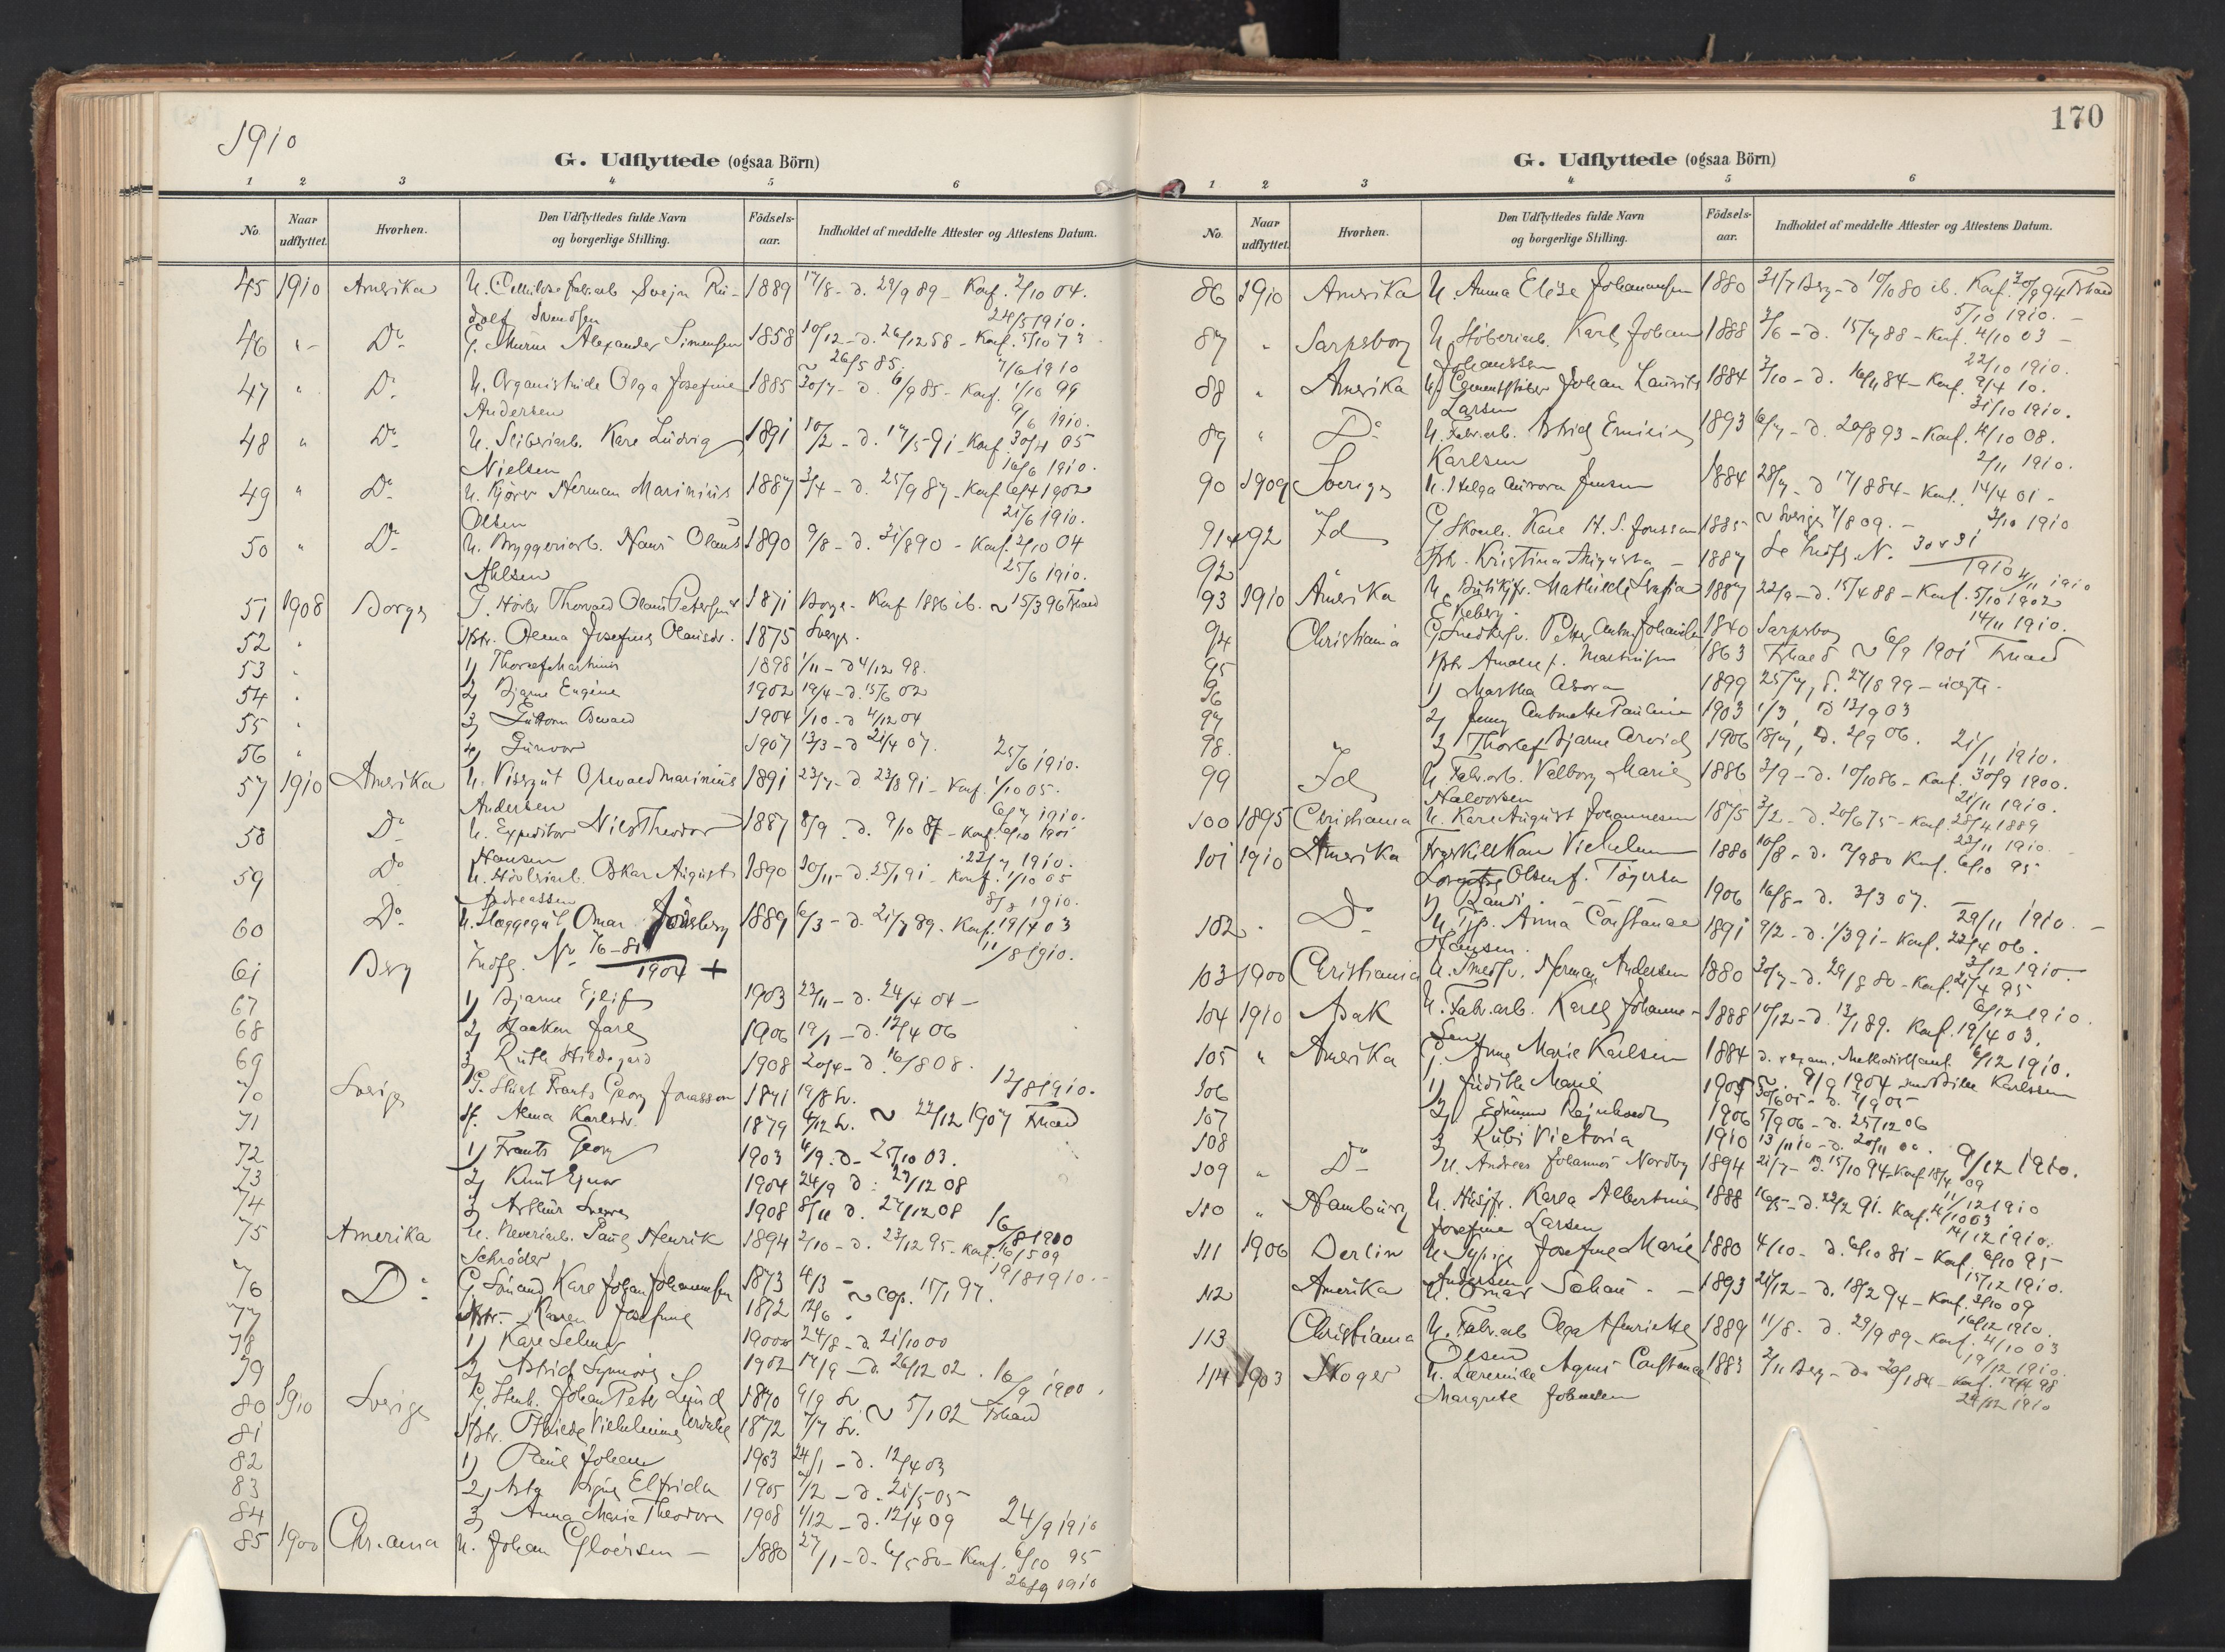 1910
G. Udflyttede (ogsaa Börn)
1 2 3 4 5 6
No. Naar udflyttet. Hvorhen. Den Udflyttedes fulde Navn og borgerlige Stilling. Födsels-aar. Indholdet af meddelte Attester og Attestens Datum.
45 1910 Amerika U. Svejn Ru- 1889 17/8 - d. 29/9 89 - Konf. 2/10 04.
dolf Svendsen 24/5 1910.
46 " Do G. Murer Alexander Simensen 1858 10/12 - d. 26/12 58 - Konf. 5/10 73
~ 26/5 85. 7/6 1910
47 " Do U. Organistinde Olga Josefine 1885 20/7 - d. 6/9 85 - Konf. 1/10 99
Andersen 9/6 1910.
48 " Do U. Sliberiarb. Karl Ludvig 1891 10/2 - d. 17/5 91 - Konf. 30/4 05
Nielsen 16/6 1910.
49 " Do U. Kjører Herman Marinius 1887 3/4 - d. 25/9 87 - Konf. 6/4 1902
Olsen 21/6 1910.
50 " Do U. Bryggeriarb. Hans Olaus 1890 9/8 - d. 31/8 90 - Konf. 2/10 04
Ahlsen 25/6 1910.
51 1908 Borge G. Thorvald Olaus Petersen 1871 Borge - Konf 1886 ib. ~ 15/3 96 Fr.hald
52 " Hstr. Alma Josefine Olausdr. 1875 Sverge.
53 " 1) Thorleif Martinius 1898 1/11 - d 4/12 98.
54 " 2) Bjarne Eugene 1902 19/4 - d. 15/6 02
55 " 3) Guttorm Osvald 1904 1/10 - d 4/12 04
56 " 4) Gunvor 1907 13/3 - d 21/4 07. 25/6 1910.
57 1910 Amerika U. Visergut Osvald Marinius 1891 23/7 - d. 23/8 91 - Konf. 1/10 05.
Andersen 6/7 1910.
58 Do U. Expeditør Niels Theodor 1887 8/9 - d. 9/10 87 - Konf. 6/10 1901
Hansen 22/7 1910.
59 Do U. Høvleriarb. Oskar August 1890 20/11 - d. 25/1 91 - Konf. 1/10 05
Andreassen 8/8 1910.
60 Do U. Omar 1889 6/3 - d. 21/7 89 - Konf. 19/4 03
11/8 1910.
61 Berg Indfl. No 76-81
1904 +
67 1) Bjarne Ejlif 1903 22/11 - d. 24/4 04 -
68 2) Haakon Jarl 1906 19/1 - d. 17/4 06
69 3) Ruth Hildegard 1908 20/4 - d. 16/8 08.
12/8 1910.
70 Sverige G. Frants Georg Jonasson 1871 19/8 Sv.
71 Hf. Alma Karlsdr. 1879 4/12 Sv. ~ 22/12 1907 Fr.hald
72 1) Frants Georg 1903 4/9 - d. 25/10 03.
73 2) Knut Ejnar 1904 24/9 d. 27/12 08
74 3) Arthur Sverre 1908 8/11 d. 27/12 08 16/8 1910
75 Amerika U. Reveriarb. Paul Henrik 1894 2/10 - d. 23/12 95 - Konf. 16/5 09
Schrøder 19/8 1910.
76 Do G. Sømand Karl Johan Johannesen 1873 4/3 - ~ cop. 17/1 97.
77 Hstr. Karen Josefine 1872 12/6
78 1) Kare Selmer 1900 24/8 - d. 21/10 00
79 2) Astrid Synnøve 1902 14/9 - d. 26/12 02. 16/9 1910.
80 1910 Sverige G. Stenh. Johan Peter Lund 1870 9/9 Sv. ~ 5/1 02 Fr.hald
81 Hstr. Vilhelmine 1872 7/7 Sv.
82 1) Paul Johan 1903 24/1 - d. 12/4 03
83 2) Asta Signe Elfrida 1905 1/2 - d. 21/5 05
84 3) Anna Marie Theodora 1908 4/12 - d. 12/4 09 24/9 1910
85 1900 Chr.ania U. Johan Gløersen - 1880 27/1 - d. 6/5 80 - Konf. 6/10 95
26/9 1910
170
G. Udflyttede (ogsaa Börn)
1 2 3 4 5 6
No. Naar udflyttet. Hvorhen. Den Udflyttedes fulde Navn og borgerlige Stilling. Födsels-aar. Indholdet af meddelte Attester og Attestens Datum.
86 1910 Amerika U. Anna Elise Johannesen 1880 31/7 Berg - d 10/10 80 ib. Konf. 30/9 94 Fr.hald
5/10 1910. -
87 " Sarpsborg U. Støberiarb. Karl Johan 1888 3/6 - d. 15/7 88 - Konf. 4/10 03 -
Johanssen 22/10 1910.
88 " Amerika U. Cementstøber Johan Laurits 1884 3/10 - d. 16/11 84 - Konf. 9/4 10.
Larsen 31/10 1910.
89 " Do U. Fabr.arb. Astrid Emilie 1893 6/7 - d. 20/8 93 - Konf. 4/10 08.
Karlsen 2/11 1910.
90 1909 Sverige U. Helga Aurora Jensen 1884 28/7 - d 17/8 84 - Konf. 14/4 01 -
~ Sverige 7/8 09. - 3/10 1910
91 + 92 Id G. Skom. Karl H. S. Jonsson 1885 Se Indfl. N. 30 & 31
92 Hstr. Kristina Augusta - 1887 1910 4/11 1910
93 1910 Amerika U. Butikfr. Mathilde Sofia 1887 22/9 - d. 15/4 88 - Konf. 5/10 1902
Ekeberg. 14/11 1910.
94 Christiania G. Snedkersv. Peter Anton Johansen 1840 Sarpsborg
95 Hstr. Amalie f. Martinsen 1863 Fr.hald ~ 6/9 1901 Fr.hald
96 1) Martha Asora 1899 25/7, d. 27/8 99 - uægte.
97 2) Jenny Antonette Pauline 1903 1/3, d 13/9 03
98. 3) Thorlef Bjarne Arvid 1906 18/7, d. 2/9 06. 21/11 1910.
99 Id U. Fabr.arb. Valborg Marie 1886 3/9 - d. 10/10 86 - Konf. 30/9 1900.
Halvorsen 21/11 1910.
100 1895 Christiania U. Karl August Johannesen 1875 3/2 - d. 20/6 75 - Konf. 28/4 1889
22/11 1910.
101 1910 Amerika Fraskilt Vilhelmine 1880 10/8 - d. 12/9 80 Konf. 6/10 95
Olsen f. Tøgersen
1) Randi 1906 16/8 - d. 3/3 07.
29/11 1910. -
102 " Do U. Tjp. Anna Constance 1891 9/2 - d. 1/3 91 - Konf. 22/4 06.
Hansen. 3/12 1910
103 1900 Christiania U. Smedsv. Herman Andersen 1880 30/7 - d. 29/8 80 - Konf. 21/4 95
6/12 1910.
104 1910 Aak U. Fabr.arb. Karl Johanne- 1888 10/12 - d. 13/1 89. Konf. 19/4 03.
sen 6/12 1910.
105 " Amerika G. Anna Marie Karlsen 1884
~ 9/9 1904 Karlsen
106 1) Judith Marie 1905 30/6 05 - d. 7/9 05
107 2) Edmund Rejnhardt 1906 5/9 06 - d. 25/12 06
108 3) Rubi Victoria 1910 13/11 10 - d. 20/11 00. 9/12 1910.
109 " Do U. Andreas Johannes Nordby 1894 21/7 - d. 15/10 94 - Konf 18/4 09
11/12 1910
110 " Hamburg U. Husjfr. Karla Albertine 1888 16/5 - d. 22/2 91. Konf. 4/10 03
Josefine Larsen 14/12 1910.
111 1906 Berlin U. Sypige Josefine Marie 1880 4/10 - d. 6/10 81 - Konf 6/10 95 -
Andersen 15/12 1910.
112 Amerika U. Omar Schau - 1893 21/12 - d. 18/2 94 - Konf. 3/10 09
16/12 1910.
113 Christiania U. Fabr.arb Olga Henriette 1889 11/8. d. 29/9 89 - Konf. 4/10 03
Olsen 19/12 1910.
114 1903 Skoger U. Lærerinde Agnes Constance 1883 2/11 Berg - do 20/1 84 - Konf. 17/4 98
Margrete Johnsen 24/12 1910